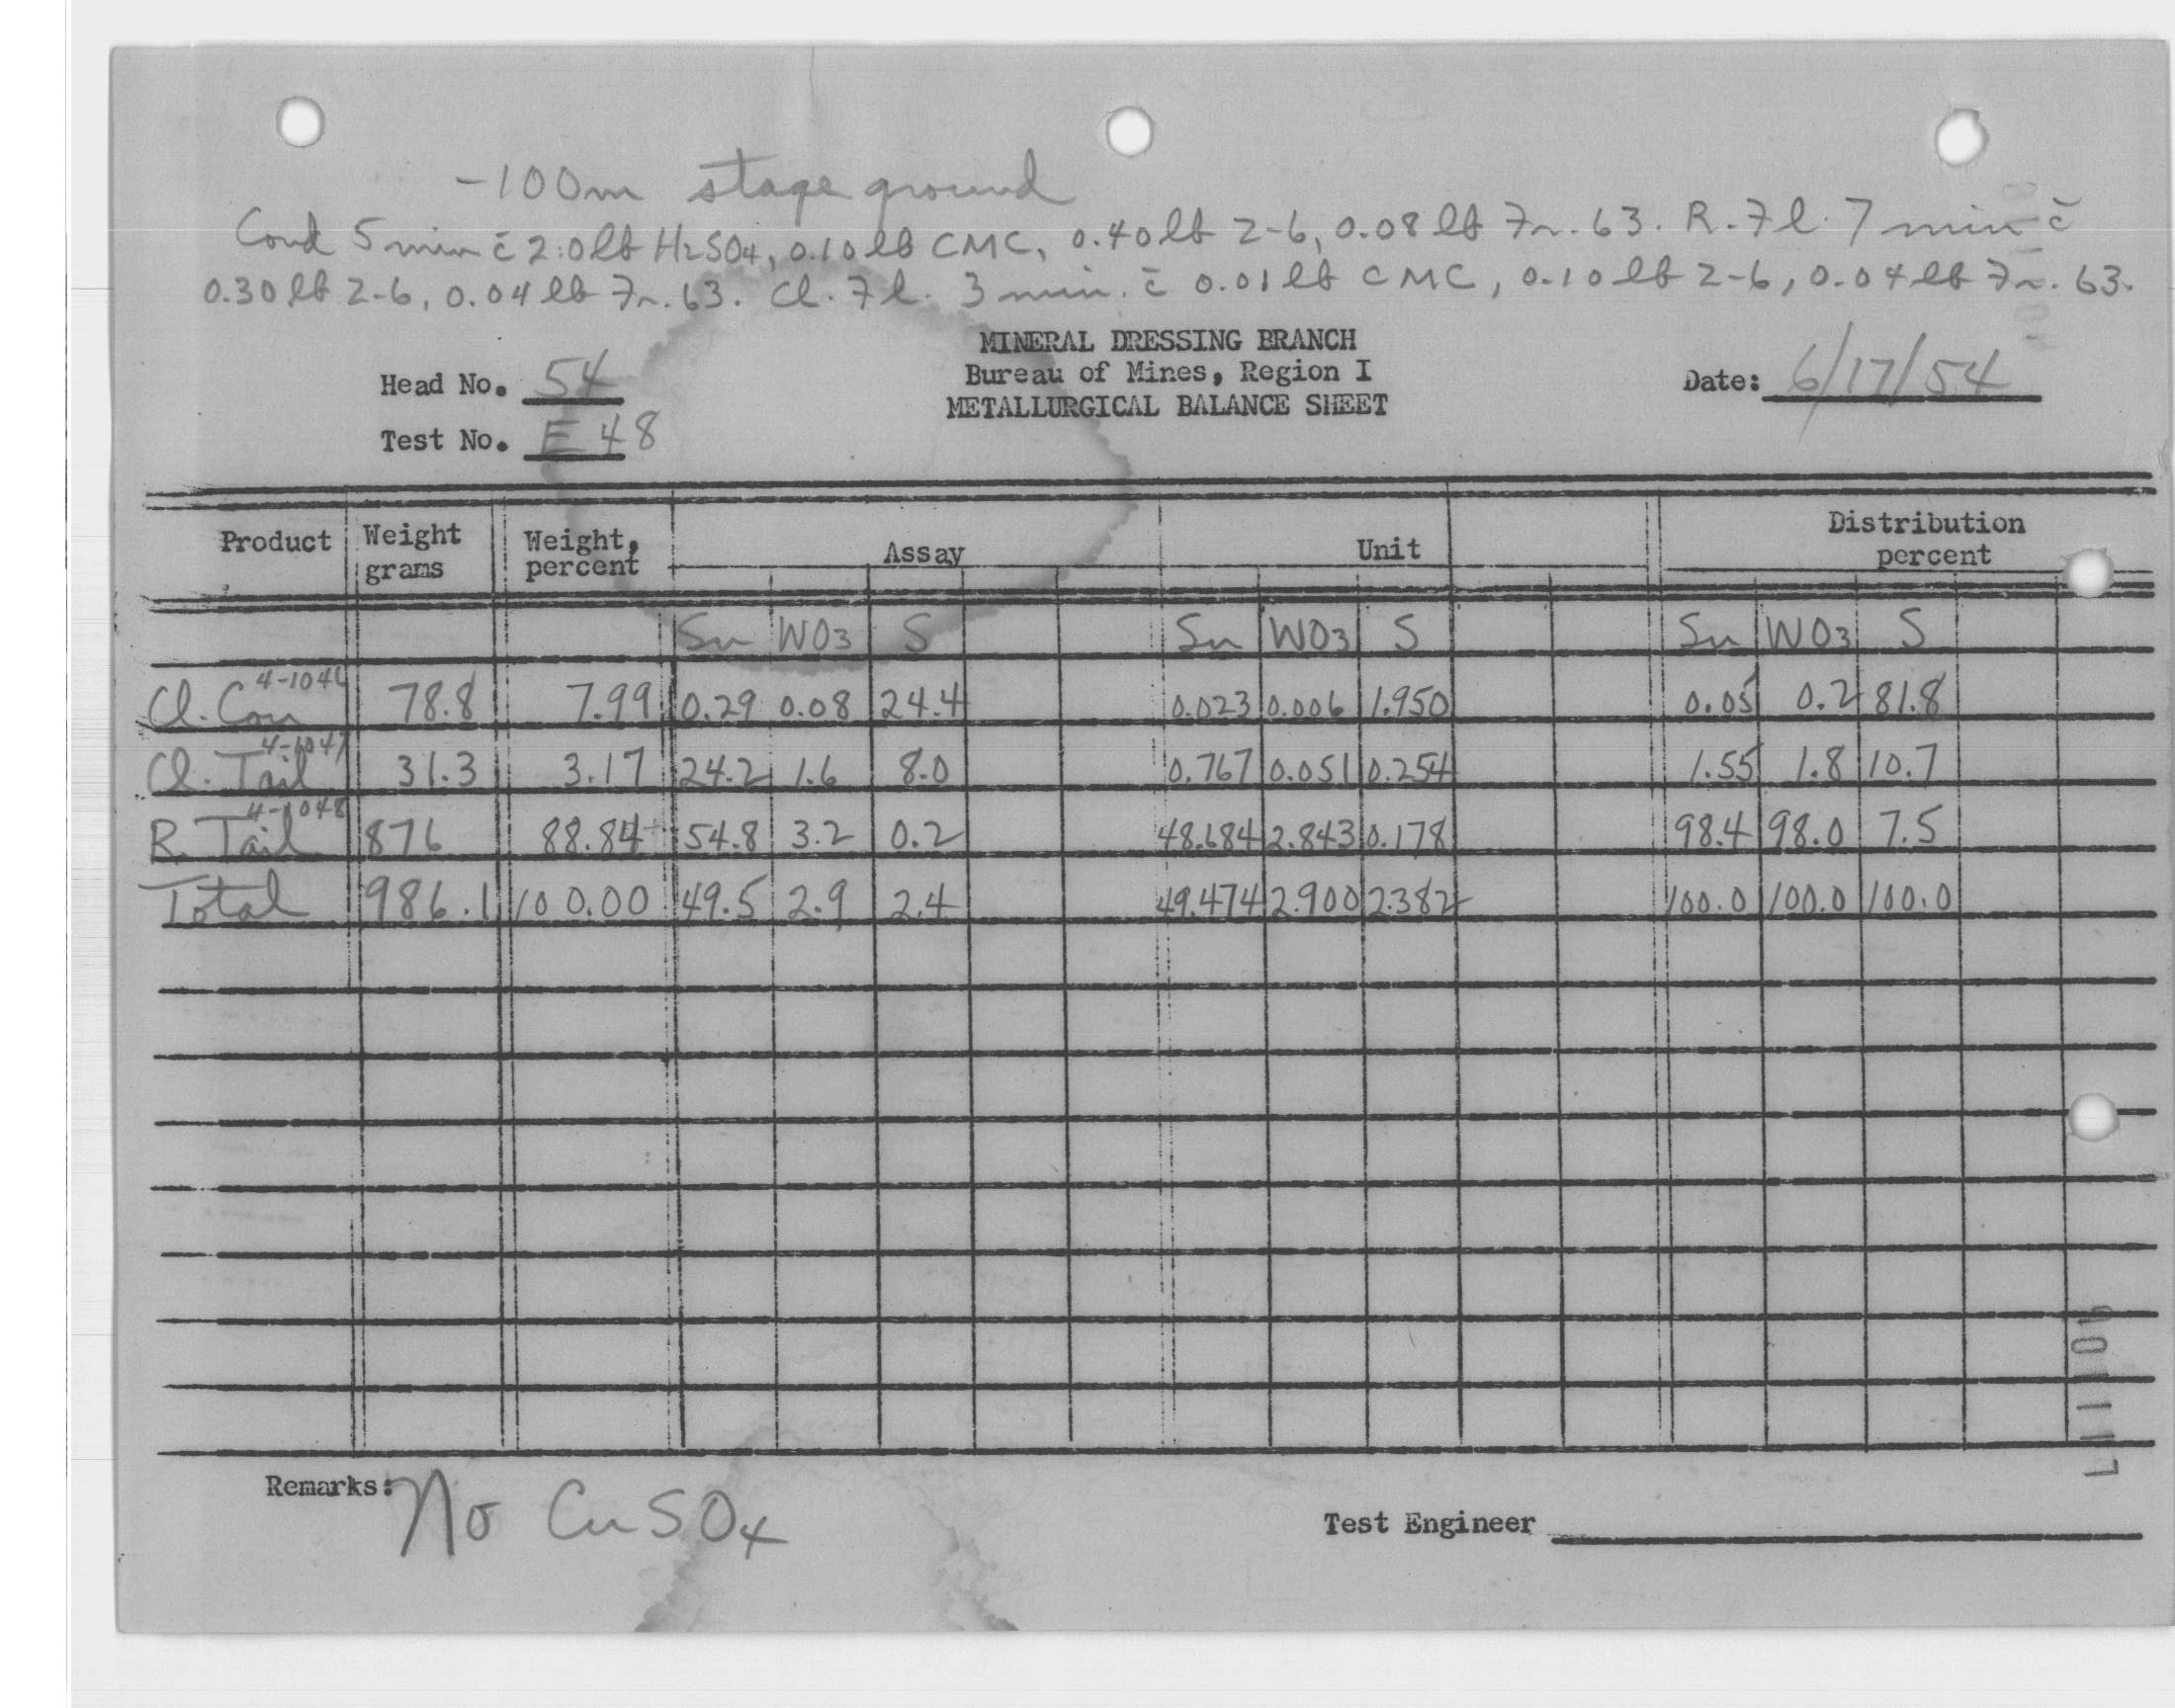 -100m stage ground
Cond 5 min c̄ 2.0 lb H2SO4, 0.10 lb CMC, 0.40 lb Z-6, 0.08 lb Fr. 63. R. Fl. 7 min c̄
0.30 lb Z-6, 0.04 lb Fr. 63. Cl. Fl. 3 min. c̄ 0.01 lb CMC, 0.10 lb Z-6, 0.04 lb Fr. 63.
MINERAL DRESSING BRANCH
Head No. 54 Bureau of Mines, Region I Date: 6/17/54
METALLURGICAL BALANCE SHEET
Test No. E 48
Product Weight grams Weight, percent Assay Unit Distribution percent
Sn WO3 S Sn WO3 S Sn WO3 S
4-1046
Cl. Con 78.8 7.99 0.29 0.08 24.4 0.023 0.006 1.950 0.05 0.2 81.8
4-1047
Cl. Tail 31.3 3.17 24.2 1.6 8.0 0.767 0.051 0.254 1.55 1.8 10.7
4-1048
R. Tail 876 88.84 54.8 3.2 0.2 48.684 2.843 0.178 98.4 98.0 7.5
Total 986.1 100.00 49.5 2.9 2.4 49.474 2.900 2.382 100.0 100.0 100.0
Remarks: No CuSO4
Test Engineer